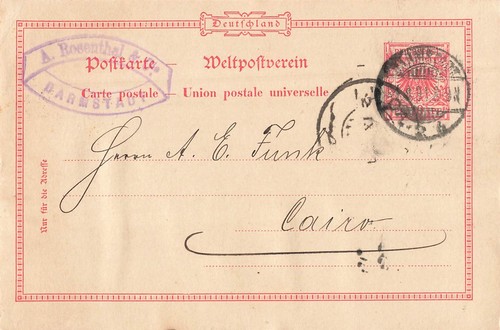 Deutschland
A. Rosenthal
DARMSTADT
Postkarte — Weltpostverein
Carte postale — Union postale universelle
Herrn A. E. Funk
Cairo
Nur für die Adresse